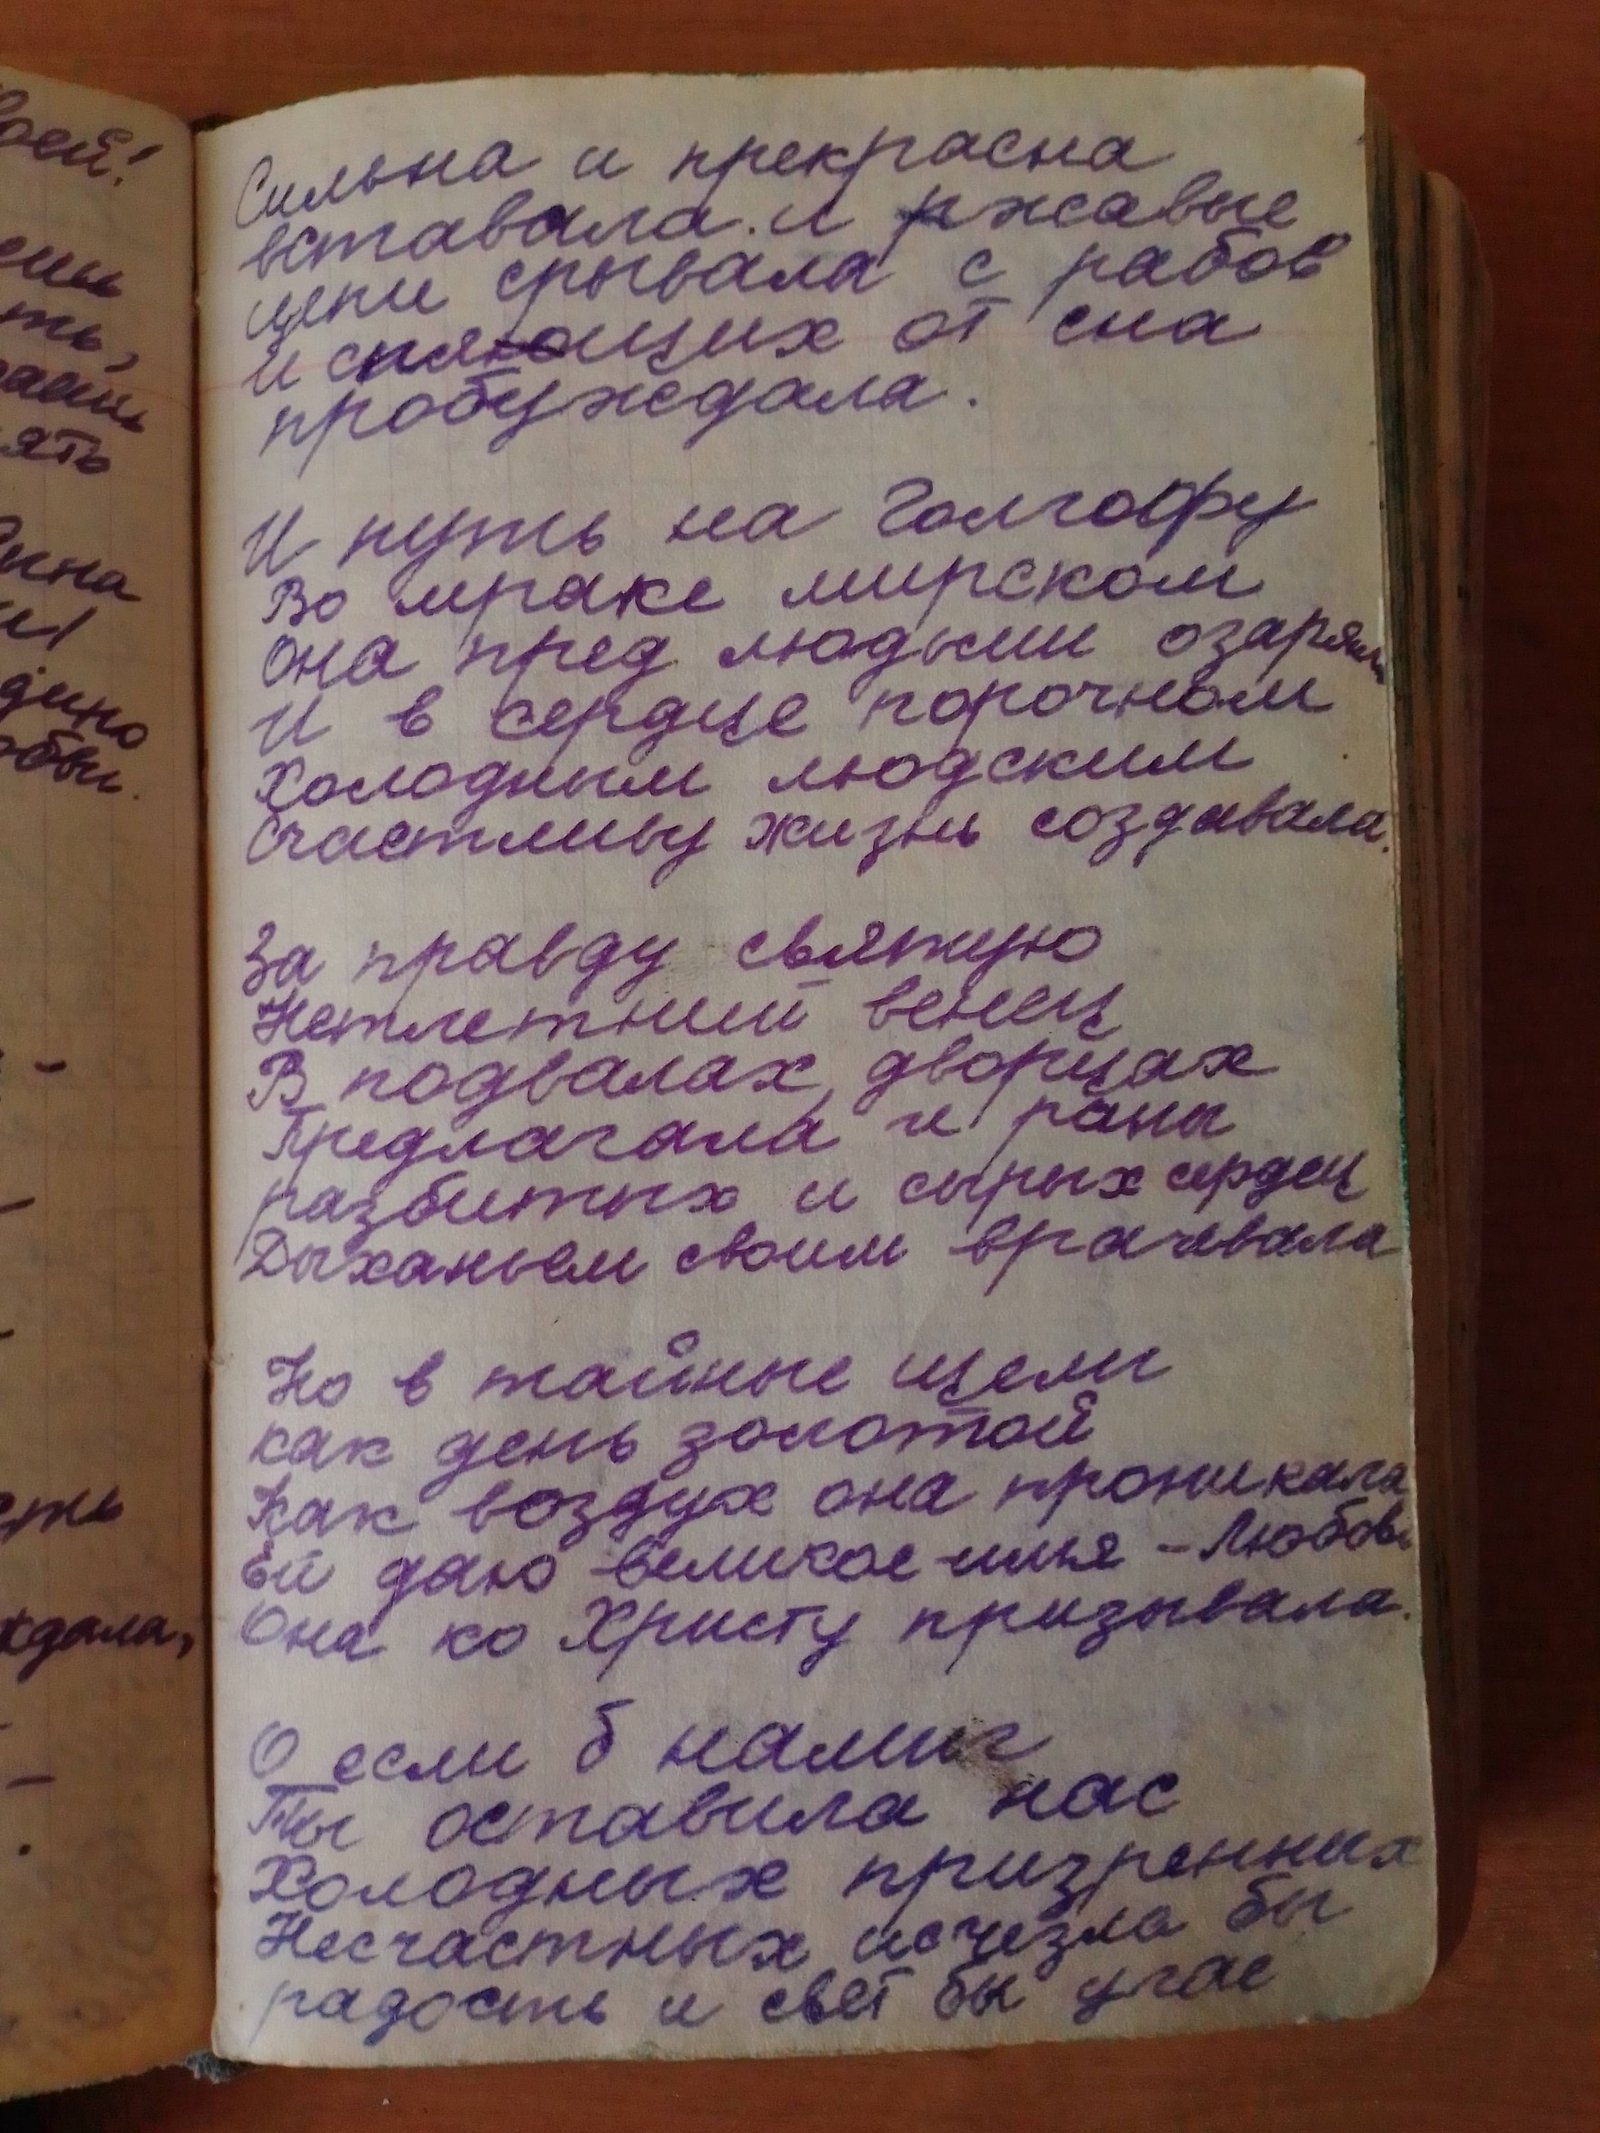 воей!
ять
Сильна и прекрасна
вставала и ржавые
цепи срывала с рабов
и спяющих от сна
пробуждала.
И путь на Голгофу
Во мраке мирском
Она пред людьми озаряла
И в сердце порочном
Холодным людским
Счастливу жизнь создавала.
За правду святую
Нетлетний венец
В подвалах, дворцах
Предлагала и раны
разбитых и сырых сердец
Дыханьем своим врачевала
Но в тайные щели
как день золотой
Как воздух она проникала
Ей даю великое имя - Любовь
Она ко Христу призывала.
О если б намиг
Ты оставила нас
Холодных призренных
Несчастных исчезла бы
радость и свет бы угас